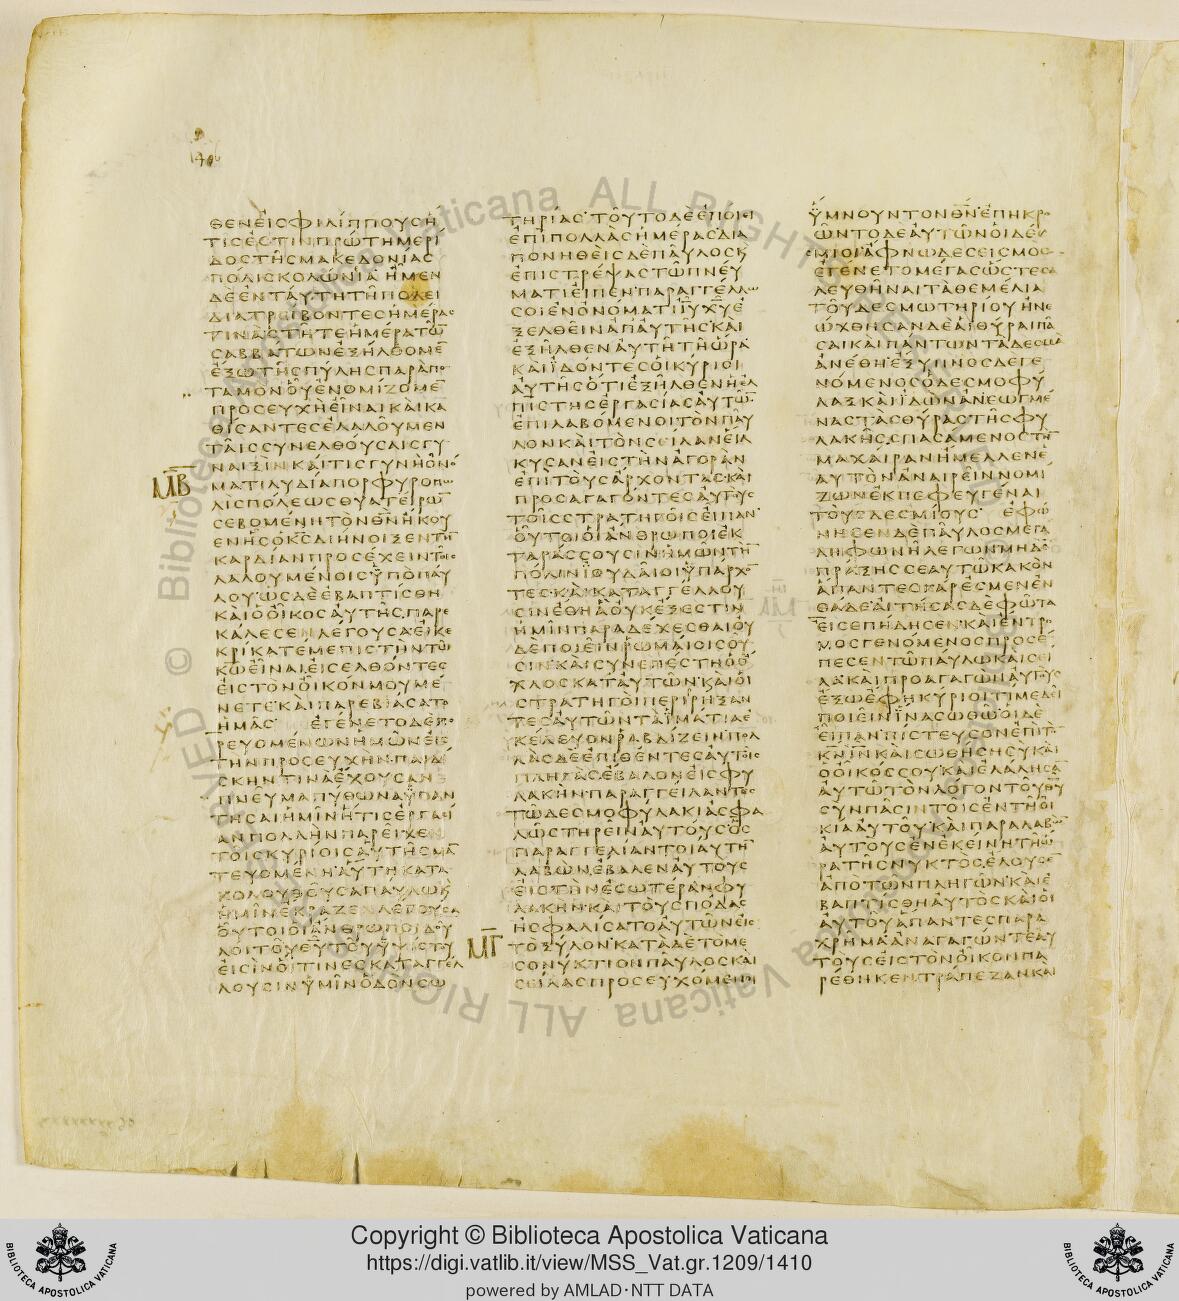 1406
ΘΕΝΕΙΣΦΙΛΙΠΠΟΥΣΗ
ΤΙΣΕΣΤΙΝΠΡΩΤΗΜΕΡΙ
ΔΟΣΤΗΣΜΑΚΕΔΟΝΙΑΣ
ΠΟΛΙΣΚΟΛΩΝΙΑΗΜΕΝ
ΔΕΕΝΤΑΥΤΗΤΗΠΟΛΕΙ
ΔΙΑΤΡΙΒΟΝΤΕΣΗΜΕΡΑΣ
ΤΙΝΑΣΤΗΤΕΗΜΕΡΑΤΩ̅
ΣΑΒΒΑΤΩΝΕΞΗΛΘΟΜΕ̅
ΕΞΩΤΗΣΠΥΛΗΣΠΑΡΑΠΟ
ΤΑΜΟΝΟΥΕΝΟΜΙΖΟΜΕ̅
ΠΡΟΣΕΥΧΗΕΙΝΑΙΚΑΙΚΑ
ΘΙΣΑΝΤΕΣΕΛΑΛΟΥΜΕΝ
ΤΑΙΣΣΥΝΕΛΘΟΥΣΑΙΣΓΥ
ΝΑΙΞΙΝΚΑΙΤΙΣΓΥΝΗΟΝΟ
Μ̅Β̅
ΜΑΤΙΛΥΔΙΑΠΟΡΦΥΡΟΠΩ
ΛΙΣΠΟΛΕΩΣΘΥΑΤΕΙΡΩ̅
ΣΕΒΟΜΕΝΗΤΟΝΘ̅Ν̅ΗΚΟΥ
ΕΝΗΣΟΚ̅Σ̅ΔΙΗΝΟΙΞΕΝΤΗ̅
ΚΑΡΔΙΑΝΠΡΟΣΕΧΕΙΝΤΟΙΣ
ΛΑΛΟΥΜΕΝΟΙΣΫΠΟΠΑΥ
ΛΟΥΩΣΔΕΕΒΑΠΤΙΣΘΗ
ΚΑΙΟΟΙΚΟΣΑΥΤΗΣΠΑΡΕ
ΚΑΛΕΣΕΝΛΕΓΟΥΣΑΕΙΚΕ
ΚΡΙΚΑΤΕΜΕΠΙΣΤΗΝΤΩ
ΚΩ̅ΕΙΝΑΙΕΙΣΕΛΘΟΝΤΕΣ
ΕΙΣΤΟΝΟΙΚΟΝΜΟΥΜΕ
ΝΕΤΕΚΑΙΠΑΡΕΒΙΑΣΑΤΟ
ΗΜΑΣ ΕΓΕΝΕΤΟΔΕΠΟ
ΡΕΥΟΜΕΝΩΝΗΜΩΝΕΙΣ
ΤΗΝΠΡΟΣΕΥΧΗΝΠΑΙΔΙ
ΣΚΗΝΤΙΝΑΕΧΟΥΣΑΝ
ΠΝΕΥΜΑΠΥΘΩΝΑΫΠΑΝ
ΤΗΣΑΙΗΜΙΝΗΤΙΣΕΡΓΑΣΙ
ΑΝΠΟΛΛΗΝΠΑΡΕΙΧΕΝ
ΤΟΙΣΚΥΡΙΟΙΣΑΥΤΗΣΜΑ̅
ΤΕΥΟΜΕΝΗΑΥΤΗΚΑΤΑ
ΚΟΛΟΥΘΟΥΣΑΠΑΥΛΩΚ
ΗΜΙΝΕΚΡΑΖΕΝΛΕΓΟΥΣΑ
ΟΥΤΟΙΟΙΑΝΘΡΩΠΟΙΔΟΥ
ΛΟΙΤΟΥΘ̅Υ̅ΤΟΥΫΨΙΣΤΟΥ
ΕΙΣΙΝΟΙΤΙΝΕΣΚΑΤΑΓΓΕΛ
ΛΟΥΣΙΝΫΜΙΝΟΔΟΝΣΩ
ΤΗΡΙΑΣΤΟΥΤΟΔΕΕΠΟΙΕΙ
ΕΠΙΠΟΛΛΑΣΗΜΕΡΑΣΔΙΑ
ΠΟΝΗΘΕΙΣΔΕΠΑΥΛΟΣΚ
ΕΠΙΣΤΡΕΨΑΣΤΩΠΝΕΥ
ΜΑΤΙΕΙΠΕΝΠΑΡΑΓΓΕΛΛΩ
ΣΟΙΕΝΟΝΟΜΑΤΙΙ̅Υ̅Χ̅Υ̅Ε
ΞΕΛΘΕΙΝΑΠΑΥΤΗΣΚΑΙ
ΕΞΗΛΘΕΝΑΥΤΗΤΗΩΡΑ
ΚΑΙΙΔΟΝΤΕΣΟΙΚΥΡΙΟΙ
ΑΥΤΗΣΟΤΙΕΞΗΛΘΕΝΗΕΛ
ΠΙΣΤΗΣΕΡΓΑΣΙΑΣΑΥΤΩ̅
ΕΠΙΛΑΒΟΜΕΝΟΙΤΟΝΠΑΥ
ΛΟΝΚΑΙΤΟΝΣΕΙΛΑΝΕΙΛ
ΚΥΣΑΝΕΙΣΤΗΝΑΓΟΡΑΝ
ΕΠΙΤΟΥΣΑΡΧΟΝΤΑΣΚΑΙ
ΠΡΟΣΑΓΑΓΟΝΤΕΣΑΥΤΟΥΣ
ΤΟΙΣΣΤΡΑΤΗΓΟΙΣΕΙΠΑΝ
ΟΥΤΟΙΟΙΑΝΘΡΩΠΟΙΕΚ
ΤΑΡΑΣΣΟΥΣΙΝΗΜΩΝΤΗ̅
ΠΟΛΙΝΙΟΥΔΑΙΟΙΫΠΑΡΧΟ̅
ΤΕΣΚΑΙΚΑΤΑΓΓΕΛΛΟΥ
ΣΙΝΕΘΗΑΟΥΚΕΞΕΣΤΙΝ
ΗΜΙΝΠΑΡΑΔΕΧΕΣΘΑΙΟΥ
ΔΕΠΟΙΕΙΝΡΩΜΑΙΟΙΣΟΥ
ΣΙΝΚΑΙΣΥΝΕΠΕΣΤΗΟΟ
ΧΛΟΣΚΑΤΑΥΤΩΝΚΑΙΟΙ
ΣΤΡΑΤΗΓΟΙΠΕΡΙΡΗΞΑΝ
ΤΕΣΑΥΤΩΝΤΑΪΜΑΤΙΑΕ
ΚΕΛΕΥΟΝΡΑΒΔΙΖΕΙΝΠΟΛ
ΛΑΣΔΕΕΠΙΘΕΝΤΕΣΑΥΤΟΙΣ
ΠΛΗΓΑΣΕΒΑΛΟΝΕΙΣΦΥ
ΛΑΚΗΝΠΑΡΑΓΓΕΙΛΑΝΤΕΣ
ΤΩΔΕΣΜΟΦΥΛΑΚΙΑΣΦΑ
ΛΩΣΤΗΡΕΙΝΑΥΤΟΥΣΟΣ
ΠΑΡΑΓΓΕΛΙΑΝΤΟΙΑΥΤΗ̅
ΛΑΒΩΝΕΒΑΛΕΝΑΥΤΟΥΣ
ΕΙΣΤΗΝΕΣΩΤΕΡΑΝΦΥ
ΛΑΚΗΝΚΑΙΤΟΥΣΠΟΔΑΣ
ΗΣΦΑΛΙΣΑΤΟΑΥΤΩΝΕΙΣ
Μ̅Γ̅
ΤΟΞΥΛΟΝΚΑΤΑΔΕΤΟΜΕ
ΣΟΝΥΚΤΙΟΝΠΑΥΛΟΣΚΑΙ
ΣΕΙΛΑΣΠΡΟΣΕΥΧΟΜΕΝΟΙ
ΫΜΝΟΥΝΤΟΝΘ̅Ν̅ΕΠΗΚΡΟ
ΩΝΤΟΔΕΑΥΤΩΝΟΙΔΕΣ
ΜΙΟΙΑΦΝΩΔΕΣΕΙΣΜΟΣ
ΕΓΕΝΕΤΟΜΕΓΑΣΩΣΤΕΣΑ
ΛΕΥΘΗΝΑΙΤΑΘΕΜΕΛΙΑ
ΤΟΥΔΕΣΜΩΤΗΡΙΟΥΗΝΕ
ΩΧΘΗΣΑΝΔΕΑΙΘΥΡΑΙΠΑ
ΣΑΙΚΑΙΠΑΝΤΩΝΤΑΔΕΣΜΑ
ΑΝΕΘΗΕΞΥΠΝΟΣΔΕΓΕ
ΝΟΜΕΝΟΣΟΔΕΣΜΟΦΥ
ΛΑΞΚΑΙΙΔΩΝΑΝΕΩΓΜΕ
ΝΑΣΤΑΣΘΥΡΑΣΤΗΣΦΥ
ΛΑΚΗΣΣΠΑΣΑΜΕΝΟΣΤΗ̅
ΜΑΧΑΙΡΑΝΗΜΕΛΛΕΝΕ
ΑΥΤΟΝΑΝΑΙΡΕΙΝΝΟΜΙ
ΖΩΝΕΚΠΕΦΕΥΓΕΝΑΙ
ΤΟΥΣΔΕΣΜΙΟΥΣ ΕΦΩ
ΝΗΣΕΝΔΕΠΑΥΛΟΣΜΕΓΑ
ΛΗΦΩΝΗΛΕΓΩΝΜΗΔΕ̅
ΠΡΑΞΗΣΣΕΑΥΤΩΚΑΚΟΝ
ΑΠΑΝΤΕΣΓΑΡΕΣΜΕΝΕΝ
ΘΑΔΕΑΙΤΗΣΑΣΔΕΦΩΤΑ
ΕΙΣΕΠΗΔΗΣΕΝΚΑΙΕΝΤΡΟ
ΜΟΣΓΕΝΟΜΕΝΟΣΠΡΟΣΕ
ΠΕΣΕΝΤΩΠΑΥΛΩΚΑΙΣΕΙ
ΛΑΚΑΙΠΡΟΑΓΑΓΩΝΑΥΤΟΥΣ
ΕΞΩΕΦΗΚΥΡΙΟΙΤΙΜΕΔΕΙ
ΠΟΙΕΙΝΙΝΑΣΩΘΩΟΙΔΕ
ΕΙΠΑΝΠΙΣΤΕΥΣΟΝΕΠΙΤΟ̅
Κ̅Ν̅Ι̅Ν̅ΚΑΙΣΩΘΗΣΗΣΥΚΑΙ
ΟΟΙΚΟΣΣΟΥΚΑΙΕΛΑΛΗΣΑ̅
ΑΥΤΩΤΟΝΛΟΓΟΝΤΟΥΘ̅Υ̅
ΣΥΝΠΑΣΙΝΤΟΙΣΕΝΤΗΟΙ
ΚΙΑΑΥΤΟΥΚΑΙΠΑΡΑΛΑΒΩ̅
ΑΥΤΟΥΣΕΝΕΚΕΙΝΗΤΗΩ
ΡΑΤΗΣΝΥΚΤΟΣΕΛΟΥΣΕ̅
ΑΠΟΤΩΝΠΛΗΓΩΝΚΑΙΕ
ΒΑΠΤΙΣΘΗΑΥΤΟΣΚΑΙΟΙ
ΑΥΤΟΥΑΠΑΝΤΕΣΠΑΡΑ
ΧΡΗΜΑΑΝΑΓΑΓΩΝΤΕΑΥ
ΤΟΥΣΕΙΣΤΟΝΟΙΚΟΝΠΑ
ΡΕΘΗΚΕΝΤΡΑΠΕΖΑΝΚΑΙ
Biblioteca Apostolica Vaticana ALL RIGHTS RESERVED ©
BIBLIOTECA APOSTOLICA VATICANA
Copyright © Biblioteca Apostolica Vaticana
https://digi.vatlib.it/view/MSS_Vat.gr.1209/1410
powered by AMLAD·NTT DATA
BIBLIOTECA APOSTOLICA VATICANA